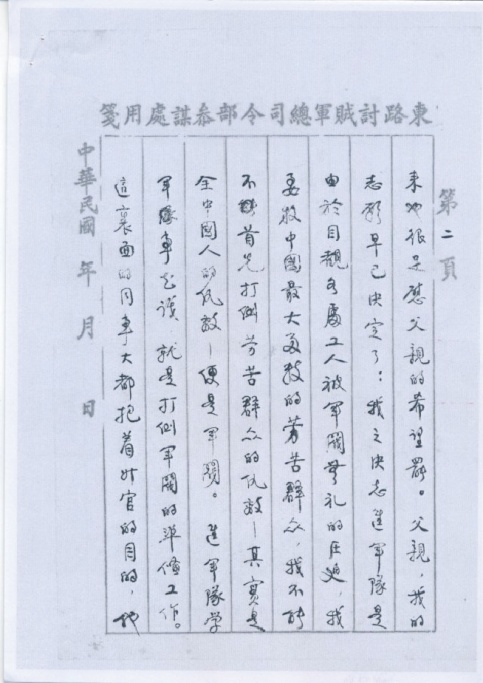 東路討賊軍總司令部參謀處用箋
第二頁
來也很足慰父親的希望罷。父親，我的
志願早已決定了：我之決志進軍隊是
由於目觀各處工人被軍閥無礼的压迫，我
要救中國最大多数的劳苦群众，我不能
不首先打倒劳苦群众的仇敌—其實是
全中國人的仇敌—便是軍閥。進軍隊学
軍事才識，就是打倒軍閥的準備工作。
這裏面的同事大都抱着升官的目的，他
中華民國 年 月 日